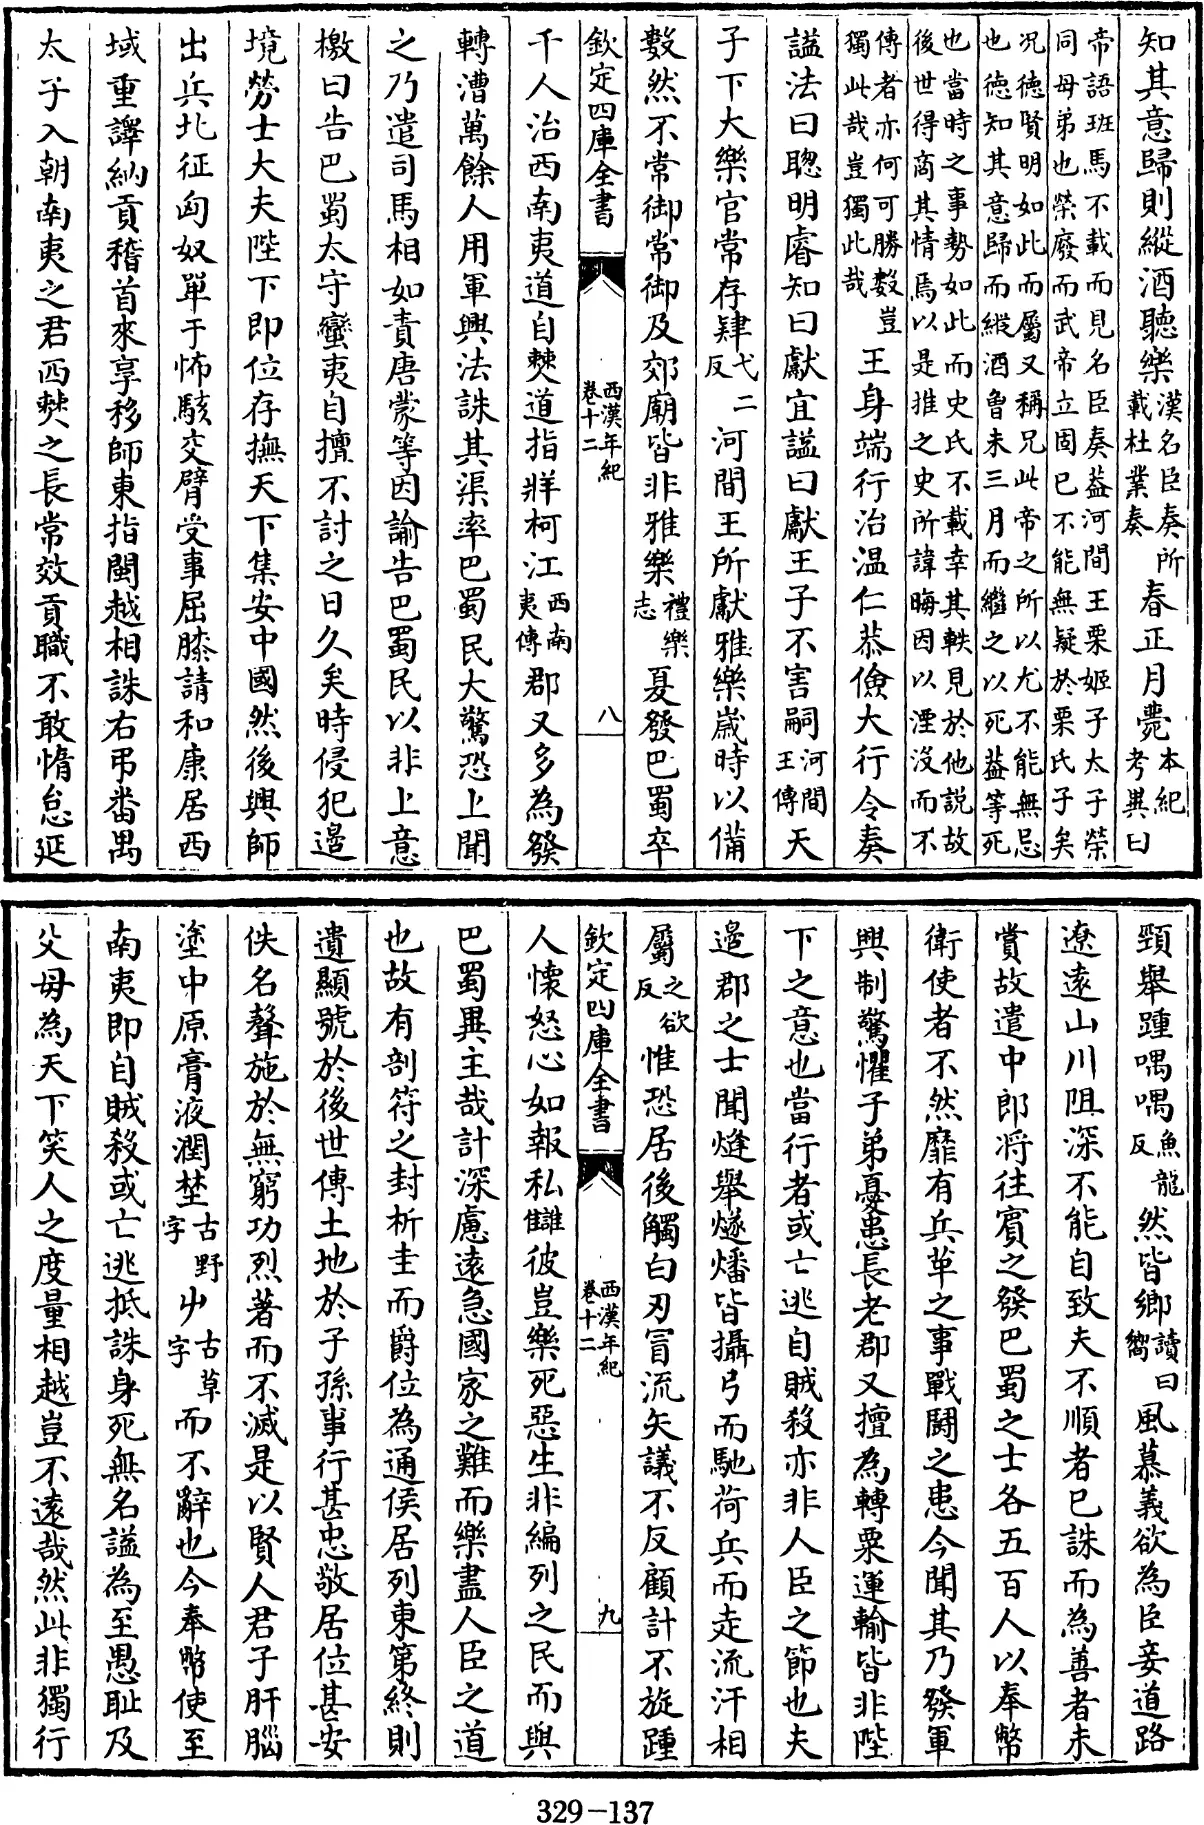 知其意歸則縱酒聽樂漢名臣奏所載杜業奏春正月薨本紀考異曰
帝語班馬不載而見名臣奏葢河間王栗姬子太子榮
同母弟也榮廢而武帝立固已不能無疑於栗氏子矣
况德賢明如此而屬又稱兄此帝之所以尤不能無忌
也德知其意歸而縱酒曾未三月而繼之以死葢等死
也當時之事勢如此而史氏不載幸其軼見於他説故
後世得商其情焉以是推之史所諱晦因以湮沒而不
傳者亦何可勝數豈獨此哉豈獨此哉王身端行治温仁恭儉大行令奏
諡法曰聰明睿知曰獻宜諡曰獻王子不害嗣河間王傳天
子下大樂官常存肄弋二反河間王所獻雅樂歲時以備
數然不常御常御及郊廟皆非雅樂禮樂志夏發巴蜀卒
欽定四庫全書 西漢年紀 卷十二 八
千人治西南夷道自僰道指牂柯江西南夷傳郡又多為發
轉漕萬餘人用軍興法誅其渠率巴蜀民大驚恐上聞
之乃遣司馬相如責唐蒙等因諭告巴蜀民以非上意
檄曰告巴蜀太守蠻夷自擅不討之日久矣時侵犯邊
境勞士大夫陛下即位存撫天下集安中國然後興師
出兵北征匈奴單于怖駭交臂受事屈膝請和康居西
域重譯納貢稽首來享移師東指閩越相誅右弔番禺
太子入朝南夷之君西僰之長常效貢職不敢惰怠延
頸舉踵喁喁魚龍反然皆鄉讀曰嚮風慕義欲為臣妾道路
遼遠山川阻深不能自致夫不順者已誅而為善者未
賞故遣中郎将往賓之發巴蜀之士各五百人以奉幣
衛使者不然靡有兵革之事戰鬬之患今聞其乃發軍
興制驚懼子弟憂患長老郡又擅為轉粟運輸皆非陛
下之意也當行者或亡逃自賊殺亦非人臣之節也夫
邉郡之士聞㷭舉燧燔皆攝弓而馳荷兵而走流汗相
屬之欲反惟恐居後觸白刃冒流矢議不反顧計不旋踵
欽定四庫全書 西漢年紀 卷十二 九
人懷怒心如報私讎彼豈樂死惡生非編列之民而與
巴蜀異主哉計深慮遠急國家之難而樂盡人臣之道
也故有剖符之封析圭而爵位為通侯居列東第終則
遺顯號於後世傳土地於子孫事行甚忠敬居位甚安
佚名聲施於無窮功烈著而不滅是以賢人君子肝腦
塗中原膏液潤埜古野字屮古草字而不辭也今奉幣使至
南夷即自賊殺或亡逃抵誅身死無名諡為至愚耻及
父母為天下笑人之度量相越豈不遠哉然此非獨行
329-137